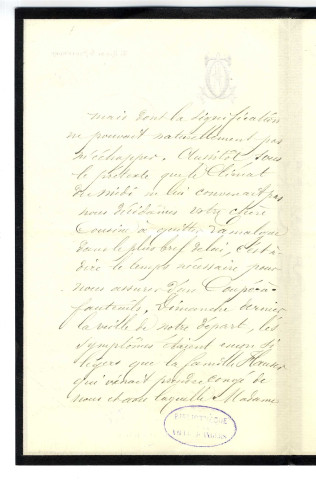 mais dont la signification
ne pouvait naturellement pas
m'échapper. Aussitôt, sous
le prétexte que le climat
du midi ne lui convenait pas
nous décidâmes votre chère
Cousine à quitter Lamalou
dans le plus bref délai, c'est à
dire le temps nécessaire pour
nous assurer d'un Coupé à
fauteuils. Dimanche dernier
la veille de notre départ, les
symptômes étaient encore si
légers que la famille
qui venait prendre congé de
nous et dans laquelle Madame
BIBLIOTHÈQUE
VILLE D'ANGERS